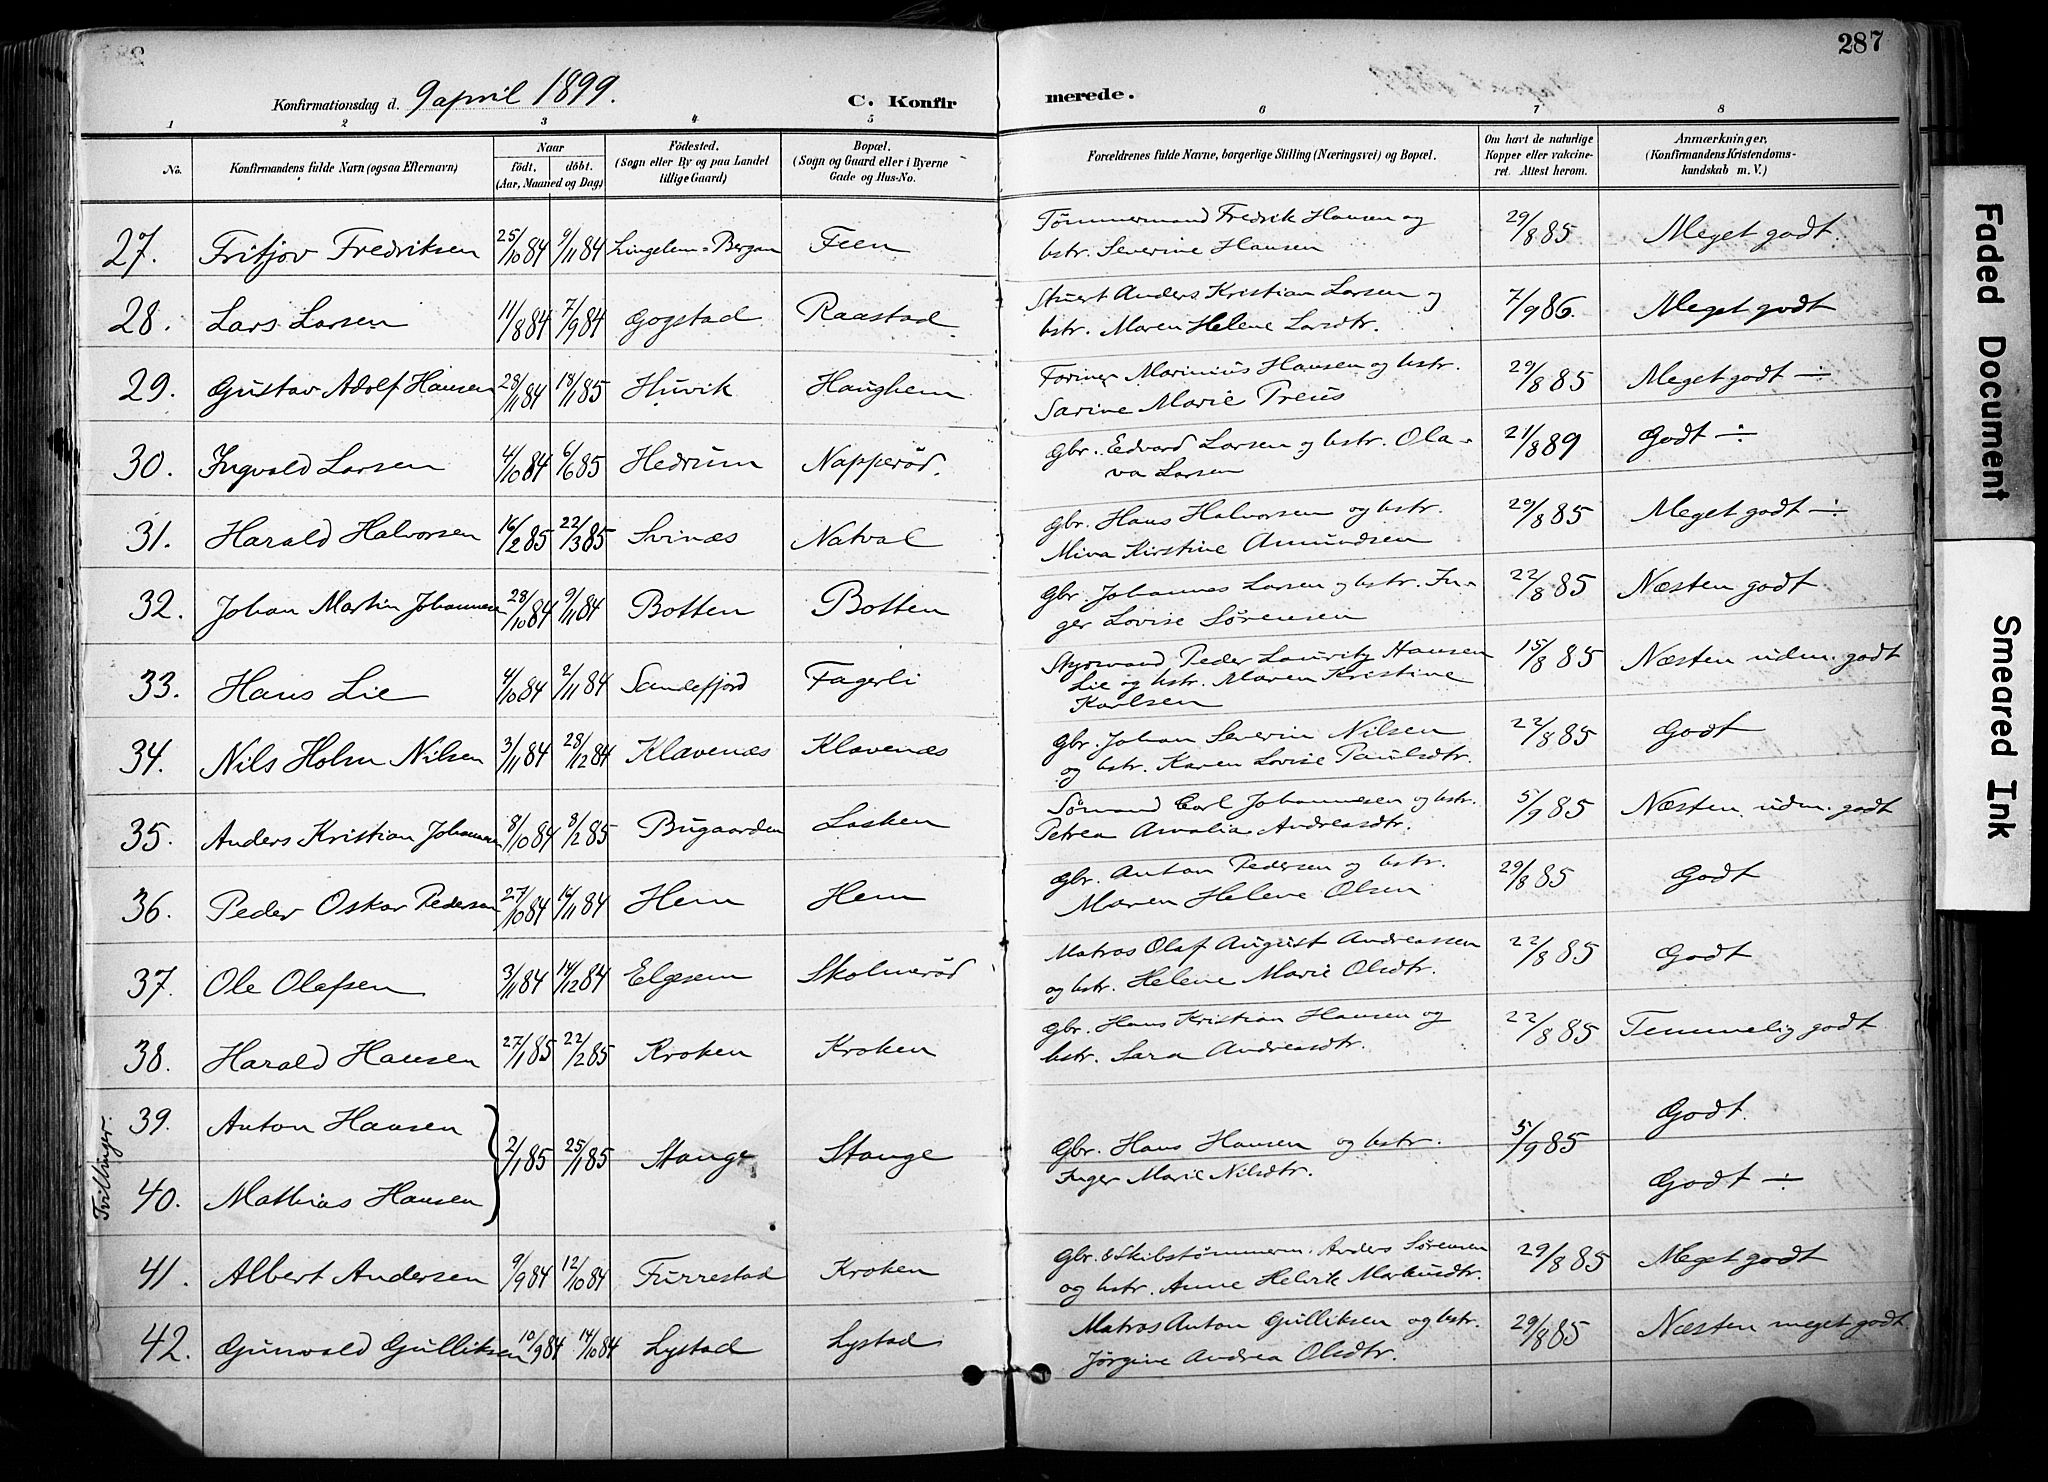 287
Konfirmationsdag d. 9 april 1899. C. Konfir merede.
1 2 3 4 5 6 7 8
No. Konfirmandens fulde Navn (ogsaa Efternavn) Naar født. døbt. (Aar, Maaned og Dag) Fødested. (Sogn eller By og paa Landet tillige Gaard) Bopæl. (Sogn og Gaard eller i Byerne Gade og Hus-No. Forældrenes fulde Navne, borgerlige Stilling (Næringsvei) og Bopæl. Om havt de naturlige Kopper eller vakcineret. Attest herom. Anmærkninger, (Konfirmandens Kristendomskundskab m. V.)
27. Fritjov Fredriksen 25/10 84 9/11 84 Lingelem - Bergan Feen Tømmermand Fredrik Hansen og 29/8 85 Meget godt.
bstr. Severine Hansen
28. Lars Larsen 11/8 84 7/9 84 Gogstad Raastad Stuert Anders Kristian Larsen og 7/9 86. Meget godt
bstr. Maren Helene Larsdtr.
29. Gustav Adolf Hansen 28/11 84 18/1 85 Huvik Haughem Farmer Marinius Hansen og bstr. 29/8 85 Meget godt ÷
Sarine Marie Preus
30. Ingvald Larsen 4/10 84 6/6 85 Hedrum Napperød. Gbr. Edvard Larsen og bstr. Ola- 21/8 89 Godt ÷
va Larsen
31. Harald Halvorsen 16/2 85 22/3 85 Svinæs Natval Gbr. Hans Halvorsen og bstr. 29/8 85 Meget godt ÷
Mina Kirstine Amundsen
32. Johan Martin Johannsen 28/10 84 9/11 84 Botten Botten Gbr. Johannes Larsen og bstr. In- 22/8 85 Næsten godt
ger Lovise Sørensen
33. Hans Lie 4/10 84 2/11 84 Sandefjord Fagerli Styrmand Peder Lauritz Hansen 15/8 85 Næsten udm. godt
Lie og bstr. Maren Kristine
Karlsen
34. Nils Holm Nilsen 3/11 84 28/12 84 Klavenæs Klavenæs Gbr. Johan Severin Nilsen 22/8 85 Godt
og bstr. Karen Lovise Paulsdtr.
35. Anders Kristian Johannsen 8/10 84 8/2 85 Bugaarden Lasken Sømand Carl Johannesen og bstr. 5/9 85 Næsten udm. godt
Petrea Amalia Andreasdtr.
36. Peder Oskar Pedersen 27/10 84 16/11 84 Hem Hem Gbr. Anton Pedersen og bstr. 29/8 85 Godt
Maren Helene Olsen
37. Ole Olafsen 3/11 84 14/12 84 Elgesem Skolmerød Matros Olaf August Andreassen 22/8 85 Godt
og bstr. Helene Marie Olsdtr.
38. Harald Hansen 27/1 85 22/2 85 Kroken Kroken Gbr. Hans Kristian Hansen og 22/8 85 Temmelig godt
bstr. Sara Andreasdtr.
Tvillinger.
39. Anton Hansen Godt.
2/1 85 25/1 85 Stange Stange Gbr. Hans Hansen og bstr. 5/9 85
Inger Marie Nilsdtr.
40. Mathias Hansen Godt ÷
41. Albert Andersen 9/9 84 12/10 84 Furrestad Kroken Gbr. & Skibstømmerm. Anders Sørensen 29/8 85 Meget godt
og bstr. Anne Helvik Markusdtr.
42. Gunvald Gulliksen 10/9 84 14/10 84 Lystad Lystad Matros Anton Gulliksen og bstr. 29/8 85 Næsten meget godt.
Jørgine Andrea Olsdtr.
Faded Document
Smeared Ink